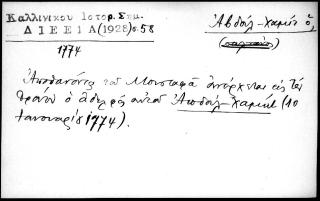 Καλλινίκου Ἱστορ. Σημ.
ΔΙΕΕΙΑ (1928) σ. 58
Ἀβδὸλ-Χαμὶτ ὁ,
(σουλτάνος)
1774
Ἀποθανόντος τοῦ Μουσταφᾶ ἀνέρχεται εἰς τὸν
θρόνον ὁ ἀδελφὸς αὐτοῦ Ἀπδοὺλ-Χαμὶτ (10
Ἰανουαρίου 1774).